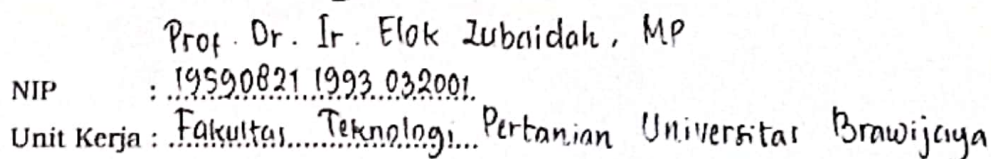 Prof. Dr. Ir. Elok Zubaidah, MP
NIP : 19590821 1993 032001
Unit Kerja : Fakultas Teknologi Pertanian Universitas Brawijaya